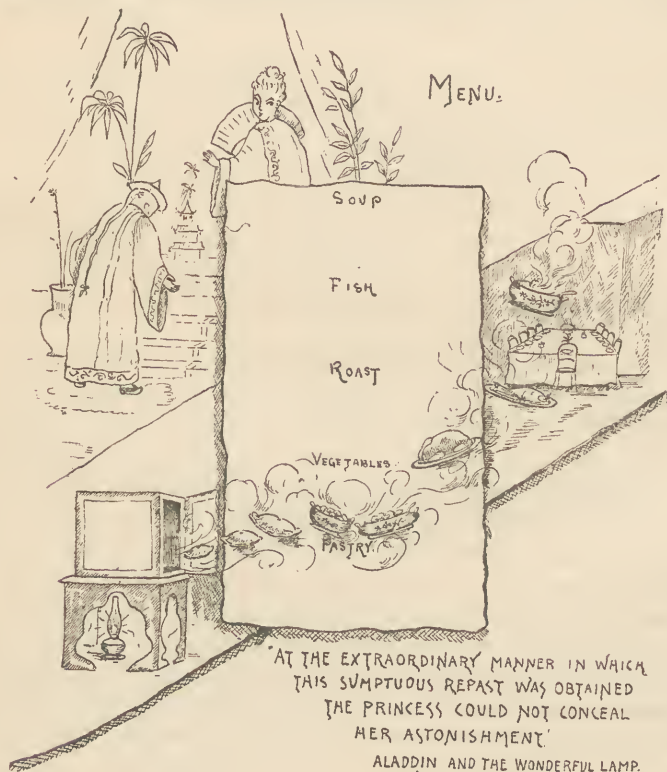 MENU.
SOUP
FISH
ROAST
VEGETABLES.
PASTRY.
"AT THE EXTRAORDINARY MANNER IN WHICH
THIS SUMPTUOUS REPAST WAS OBTAINED
THE PRINCESS COULD NOT CONCEAL
HER ASTONISHMENT.'
ALADDIN AND THE WONDERFUL LAMP.